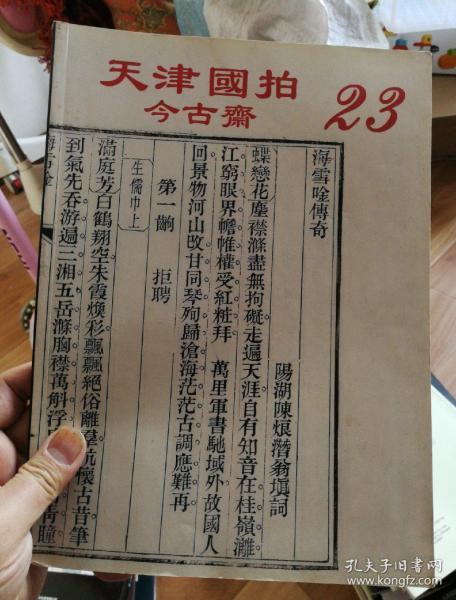 天津國拍
今古齋
23
海雪唫傳奇
陽湖陳烺潛翁塡詞
蝶戀花塵襟滌盡無拘礙走遍天涯自有知音在桂嶺灕
江窮眼界幨帷權受紅粧拜 萬里軍書馳域外故國人
回景物河山改甘同琴殉歸滄海茫茫古調應難再
第一齣 拒聘
生儒巾上
滿庭芳白鶴翔空朱霞煥彩飄飄絕俗離羣抗懷古昔筆
到氣先吞游遍三湘五岳滌胸襟萬斛浮
青瞳
孔夫子旧书网
www.kongfz.com